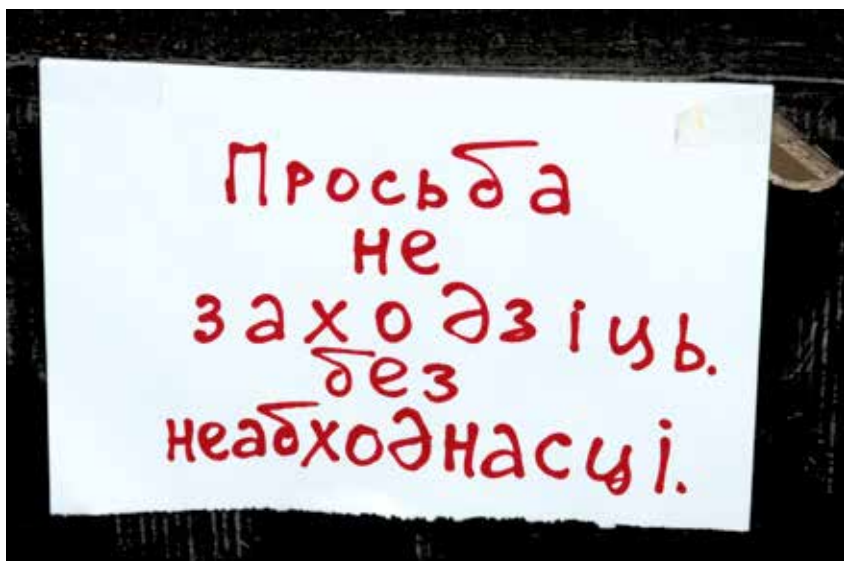 Просьба
не
заходзіць.
без
неабходнасці.